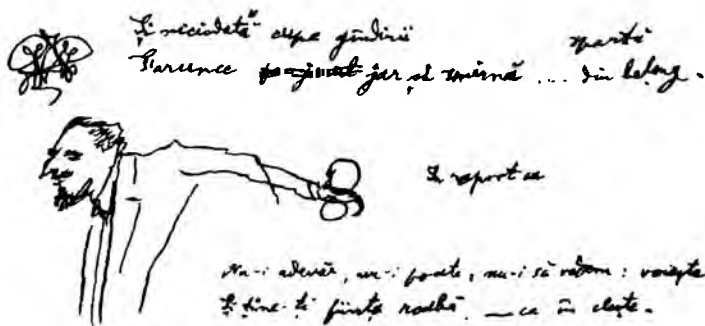 Și niciodată aripa gîndirii
moartă
S'arunce jar și smirnă ... din belșug.
În raport cu
Nu-i adevăr, nu-i poate, nu-i să vedem : voiește
Și ține-ți ființa roabă, — ca în clește.